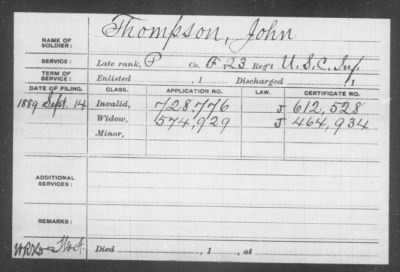 NAME OF SOLDIER: Thompson, John
SERVICE: Late rank, P Co. F. 23 Reg't U.S.C. Inf
TERM OF SERVICE: Enlisted , 1 Discharged , 1
DATE OF FILING. CLASS. APPLICATION NO. LAW. CERTIFICATE NO.
1889 Sept. 14 Invalid, 728.776 J 612,528
Widow, 574,929 J 464,934
Minor,
ADDITIONAL SERVICES:
REMARKS:
Died , 1 , at